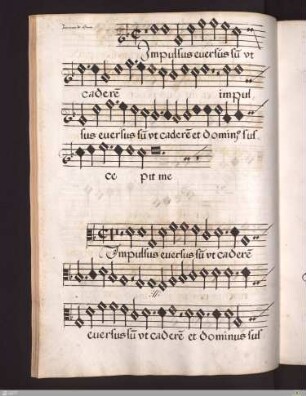 Impulsus eversus sū vt
caderē impul
sus eversus sū vt caderē et dominꝰ sus
ce pit me
Impulsus eversus sū vt caderē
eversus sū vt caderē et dominus sus